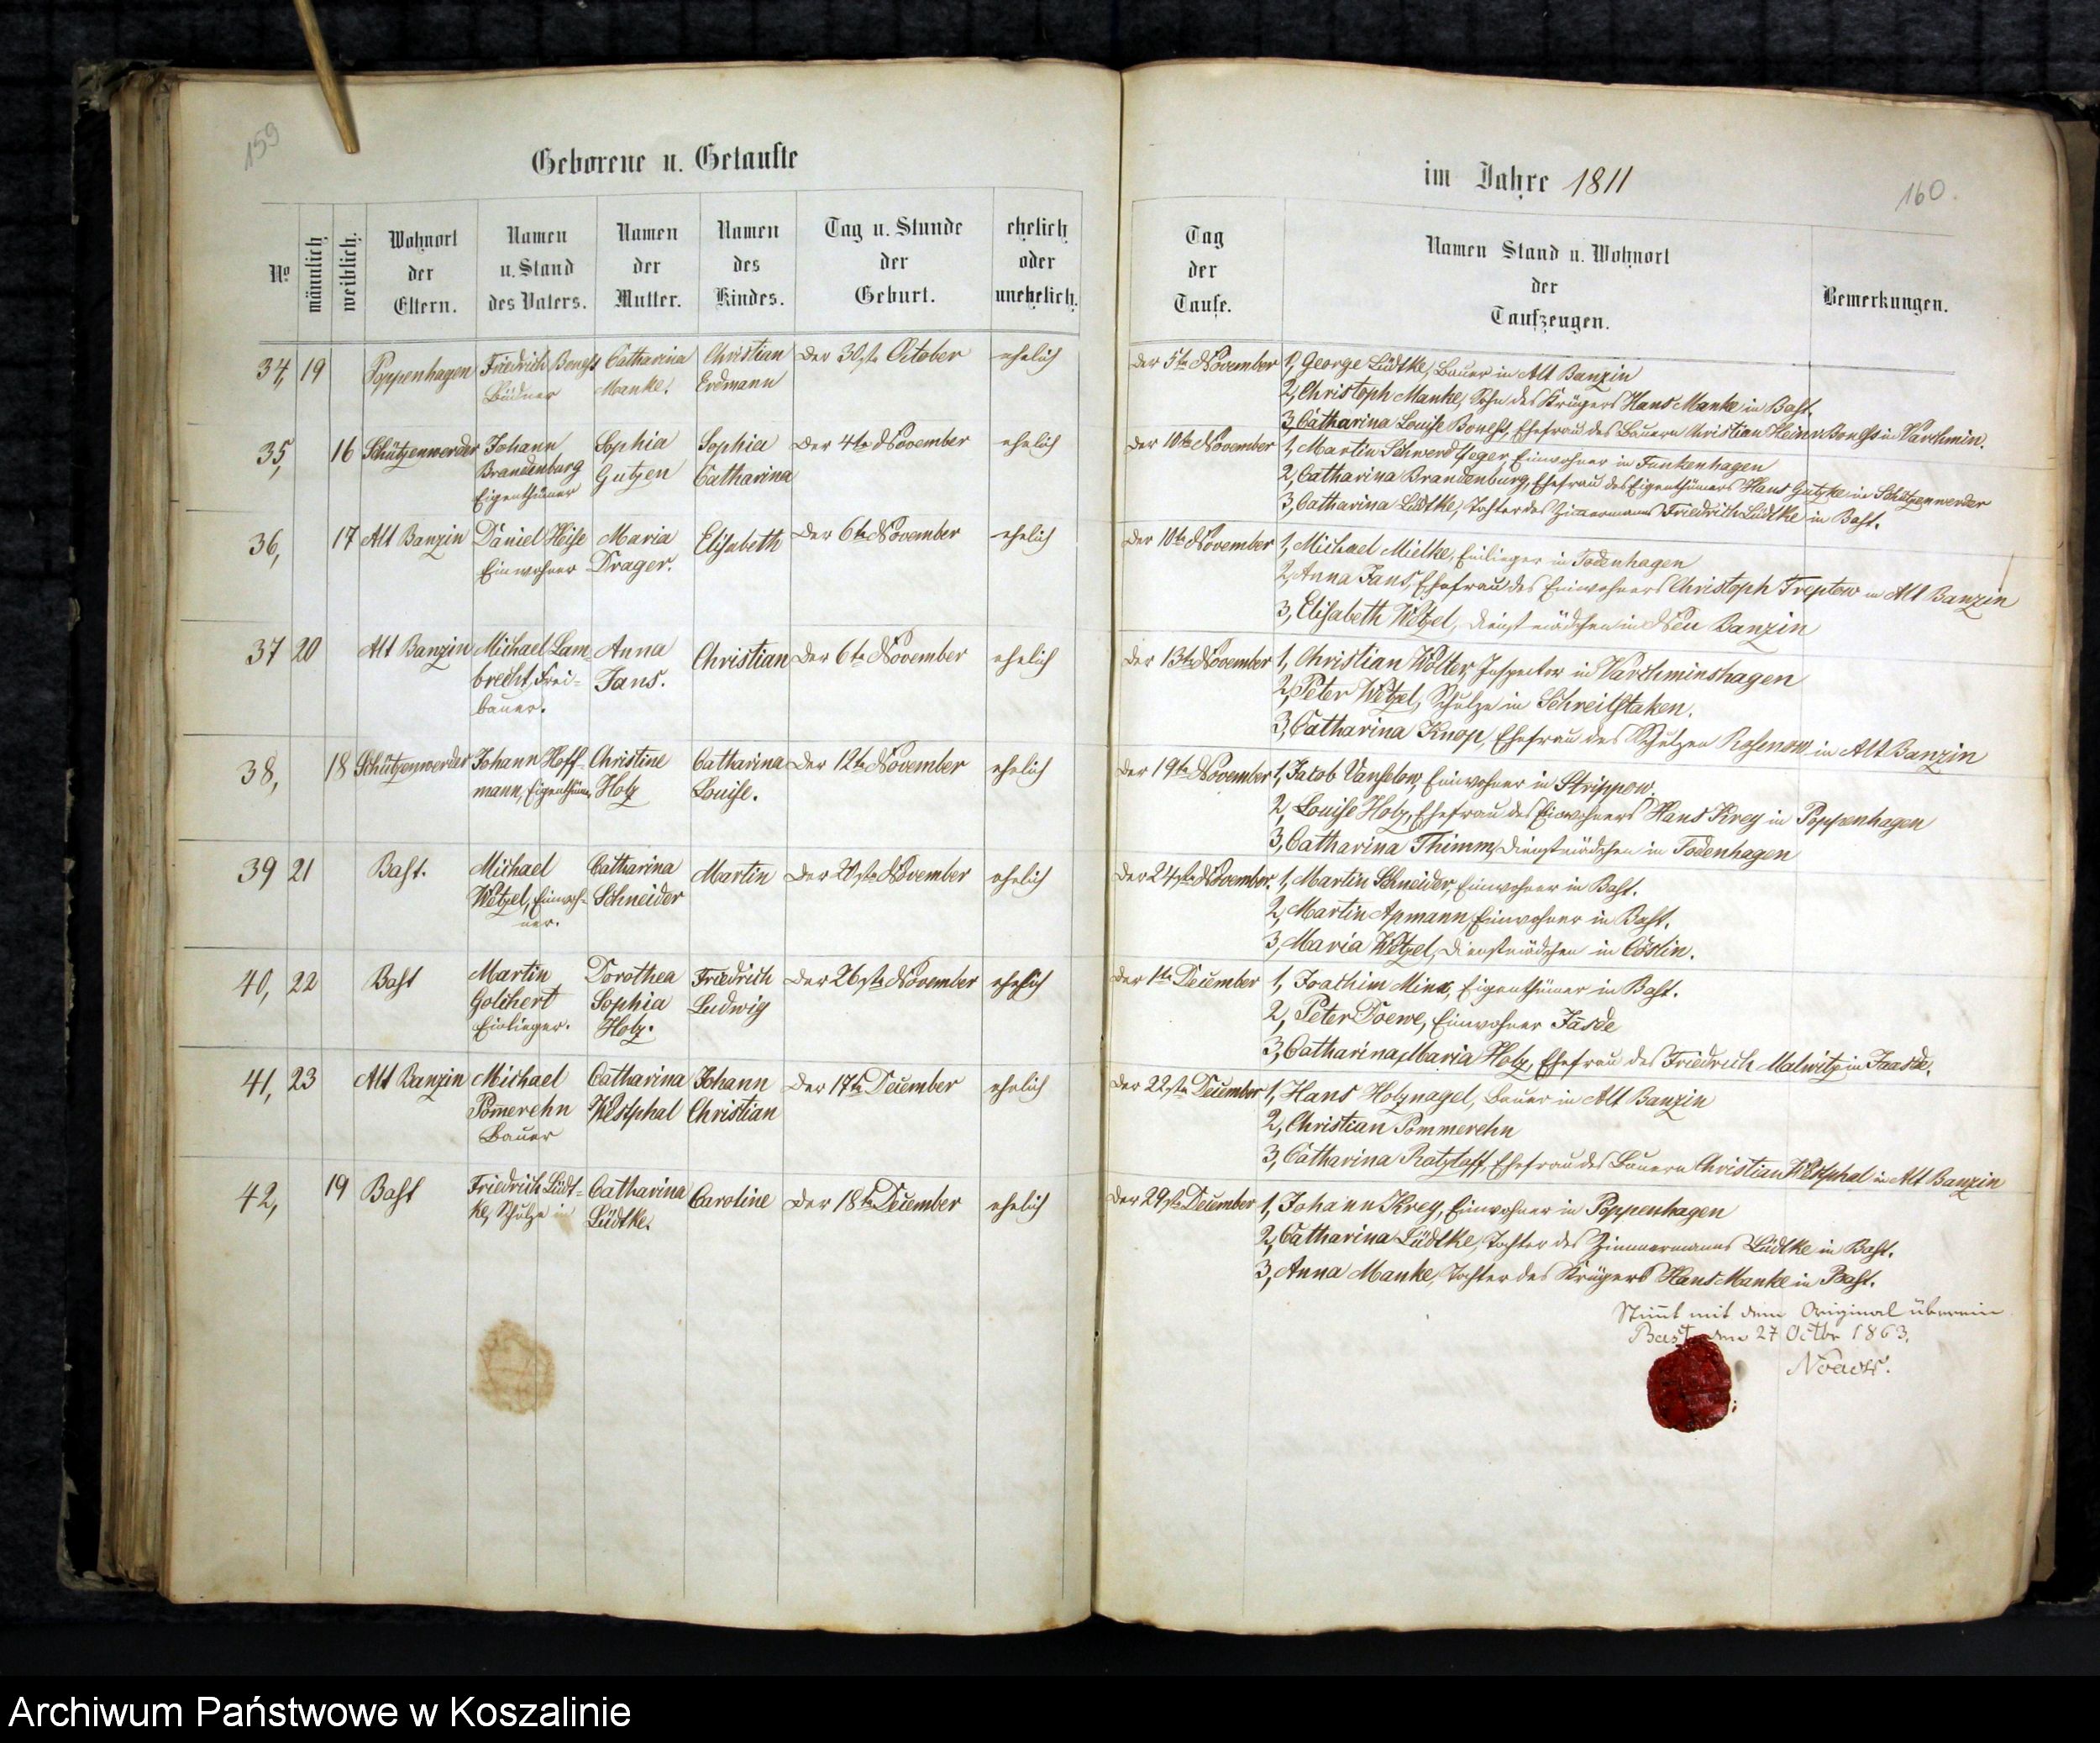 159
Geborene u. Getaufte
No männlich weiblich. Wohnort der Eltern. Namen u. Stand des Vaters. Namen der Mutter. Namen des Kindes. Tag u. Stunde der Geburt. ehelich oder unehelich.
34, 19 Poppenhagen Friedrich Catharina Christian Der 30ste October ehelich
Büdner Manke. Erdmann
35, 16 Schützenwerder Johann Sophia Sophia Der 4te November ehelich
Brandenburg Gutzen Catharina
Eigenthümer
36, 17 Alt Banzin Daniel Heise Maria Elisabeth Der 6te November ehelich
Einwohner Drager.
37 20 Alt Banzin Michael Lam- Anna Christian Der 6te November ehelich
brecht, Frei- Jans.
bauer.
38, 18 Schützenwerder Johann Hoff- Christine Catharina Der 12te November ehelich
mann, Eigenthümer Holz Louise.
39 21 Bast. Michael Catharina Martin Der November ehelich
Wetzel, Einwoh- Schneider
ner.
40, 22 Bast Martin Dorothea Friedrich Der 26ste November ehelich
Golchert Sophia Ludwig
Einlieger. Holz.
41, 23 Alt Banzin Michael Catharina Johann Der 17te December ehelich
Pomerehn Westphal Christian
Bauer
42, 19 Bast Friedrich Lüdt- Catharina Caroline Der 18te December ehelich
ke, Schulze in Lüdtke.
im Jahre 1811
160.
Tag der Taufe. Namen Stand u. Wohnort der Taufzeugen. Bemerkungen.
Der 5te November 1, George Lüdtke, Bauer in Alt Banzin
2, Christoph Manke, Sohn des Krügers Hans Manke in Bast.
3, Catharina Louise Ehefrau des Bauern Christian in Varchmin.
Der 10te November 1, Martin Schwerdfeger, Einwohner in Funkenhagen
2, Catharina Brandenburg, Ehefrau des Eigenthümers Hans Gutzke in Schützenwerder
3, Catharina Lüdtke, Tochter des Zimmermanns Friedrich Lüdtke in Bast.
Der 10te November 1, Michael Mielke, Einlieger in Todenhagen
2, Anna Jans, Ehefrau des Einwohners Christoph Treptow in Alt Banzin
3, Elisabeth Wetzel, Dienstmädchen in Neu Banzin
Der 13te November 1, Christian Wolter, Inspector in Varchminshagen
2, Peter Wetzel, Schulze in Schreitstaken.
3, Catharina Knop, Ehefrau des Schulzen Rosenow in Alt Banzin
Der 19te November 1, Jacob Vanselow, Einwohner in Strippow.
2, Louise Holz, Ehefrau des Einwohners Hans Krey in Poppenhagen
3, Catharina Thimm, Dienstmädchen in Todenhagen
Der 24ste November. 1, Martin Schneider, Einwohner in Bast.
2, Martin Apmann Einwohner in Bast.
3, Maria Wetzel, Dienstmädchen in Cöslin.
Der 1te December 1, Joachim Eigenthümer in Bast.
2, Peter Toewe, Einwohner Jasde
3, Catharina Maria Holz, Ehefrau des Friedrich Malwitz in Jaasde.
Der 22ste December 1, Hans Holznagel, Bauer in Alt Banzin
2, Christian Pommerehn
3, Catharina Ratzlaff, Ehefrau des Bauern Christian Westphal in Alt Banzin
Der 29ste December 1, Johann Krey, Einwohner in Poppenhagen
2, Catharina Lüdtke, Tochter des Zimmermanns Lüdtke in Bast.
3, Anna Manke, Tochter des Krügers Hans Manke in Bast.
Stimmt mit dem Original überein
Bast den 27 Octbr 1863.
Archiwum Państwowe w Koszalinie